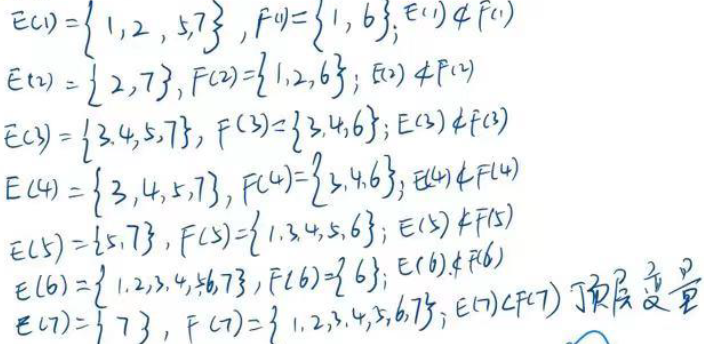 E(1)={1,2,5,7},F(1)={1,6};E(1)⊄F(1)
E(2)={2,7},F(2)={1,2,6};E(2)⊄F(2)
E(3)={3.4,5,7},F(3)={3.4,6};E(3)⊄F(3)
E(4)={3,4,5,7},F(4)={3,4,6};E(4)⊄F(4)
E(5)={5,7},F(5)={1.3,4,5,6};E(5)⊄F(5)
E(6)={1.2,3,4,5,6,7},F(6)={6};E(6)⊄F(6)
E(7)={7},F(7)={1,2,3,4,5,6,7};E(7)⊂F(7) 顶层变量